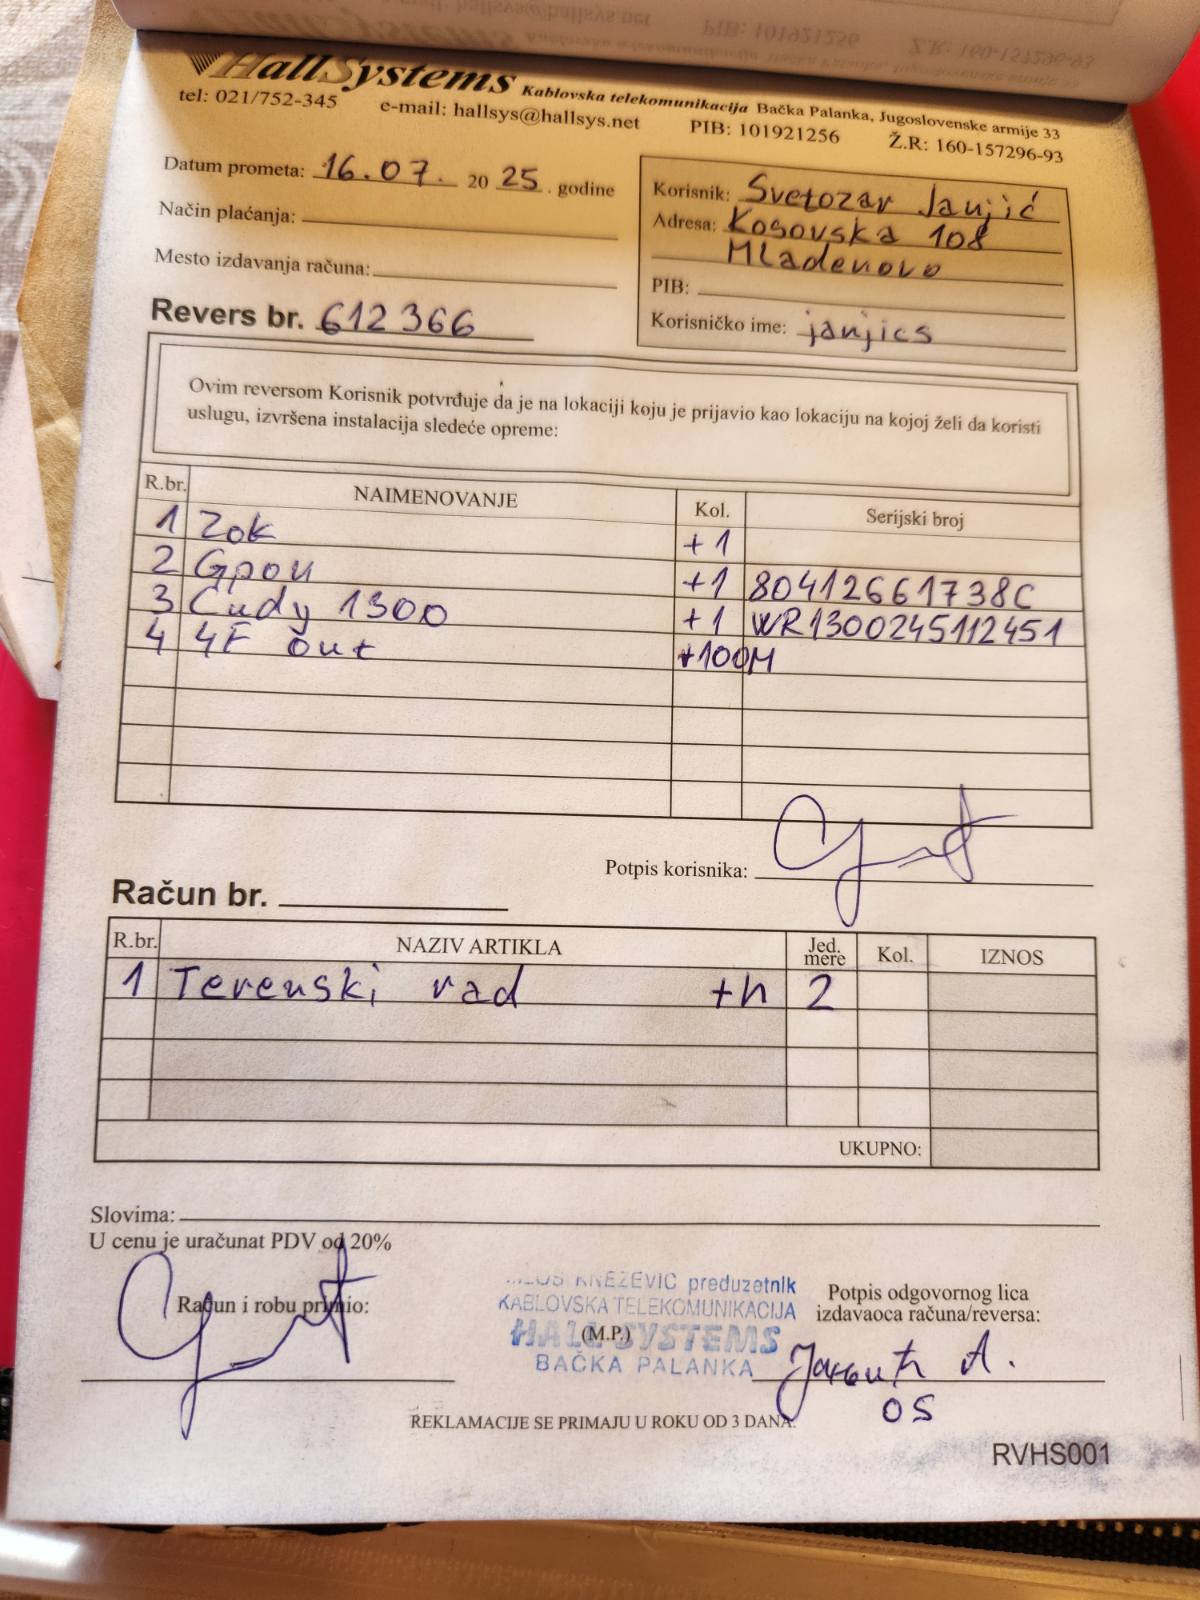 HallSystems Kablovska telekomunikacija Bačka Palanka, Jugoslovenske armije 33
tel: 021/752-345 e-mail: hallsys@hallsys.net PIB: 101921256 Ž.R: 160-157296-93
Datum prometa: 16.07. 20 25 . godine
Način plaćanja:
Mesto izdavanja računa:
Revers br. 612366
Korisnik: Svetozar Janjić
Adresa: Kosovska 108
Mladenovo
PIB:
Korisničko ime: janjics
Ovim reversom Korisnik potvrđuje da je na lokaciji koju je prijavio kao lokaciju na kojoj želi da koristi
uslugu, izvršena instalacija sledeće opreme:
R.br. NAIMENOVANJE Kol. Serijski broj
1 Zok +1
2 Gpon +1 80412661738C
3 Cudy 1300 +1 WR1300245112451
4 4F out +100M
Potpis korisnika:
Račun br.
R.br. NAZIV ARTIKLA Jed. mere Kol. IZNOS
1 Terenski rad +h 2
UKUPNO:
Slovima:
U cenu je uračunat PDV od 20%
Račun i robu primio:
KNEZEVIC preduzetnik
KABLOVSKA TELEKOMUNIKACIJA
(M.P.)
HALL SYSTEMS
BAČKA PALANKA
Potpis odgovornog lica
izdavaoca računa/reversa:
A.
05
REKLAMACIJE SE PRIMAJU U ROKU OD 3 DANA.
RVHS001